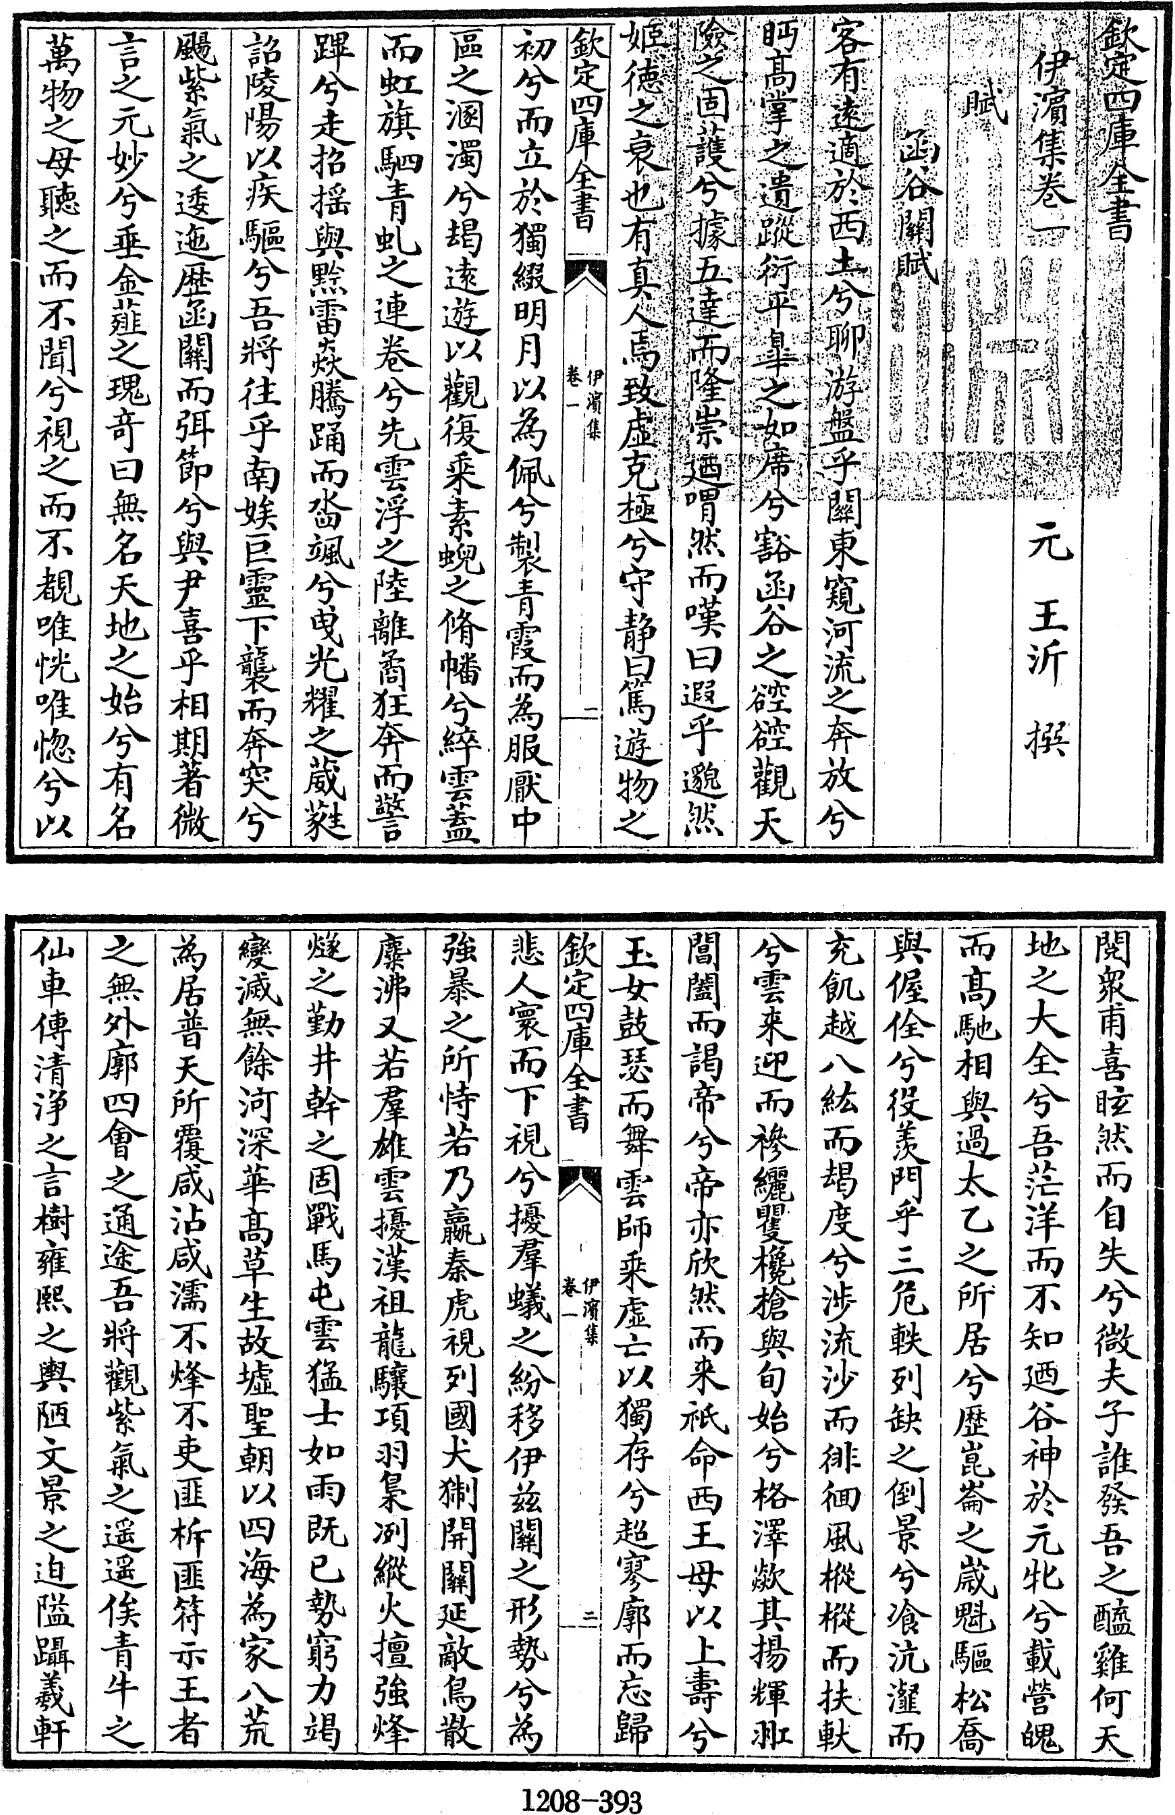 欽定四庫全書
伊濱集卷一
元 王沂 撰
賦
函谷關賦
客有遠適於西土兮聊游盤乎關東窺河流之奔放兮
眄高掌之遺蹤衍平臯之如席兮豁函谷之硿硿觀天
險之固護兮據五達而隆崇廼喟然而嘆曰遐乎邈然
姬德之衰也有真人焉致虛克極兮守静曰篤遊物之
欽定四庫全書
伊濱集
卷一
一
初兮而立於獨綴明月以為佩兮製青霞而為服厭中
區之溷濁兮朅逺遊以觀復乘素蜺之脩幡兮綷雲蓋
而虹旗駟青虬之連卷兮先雲浮之陸離矞狂奔而警
蹕兮走招摇與黙雷焱騰踊而㳫颯兮曵光耀之葳蕤
詔陵陽以疾驅兮吾將往乎南娭巨靈下襲而奔突兮
颺紫氣之逶迤歴函關而弭節兮與尹喜乎相期著微
言之元妙兮垂金薤之瑰竒曰無名天地之始兮有名
萬物之母聽之而不聞兮視之而不覩唯恍唯惚兮以
閱衆甫喜眩然而自失兮微夫子誰發吾之醯雞何天
地之大全兮吾茫洋而不知廼谷神於元牝兮載營魄
而髙馳相與過太乙之所居兮歴崑崙之嵗魁驅松喬
與偓佺兮役羨門乎三危軼列缺之倒景兮飡沆瀣而
充飢越八紘而朅度兮渉流沙而徘徊風樅樅而扶軑
兮雲来迎而襂纚矍欃槍與旬始兮格澤歘其揚輝䎕
閶闔而謁帝兮帝亦欣然而来祇命西王母以上壽兮
玉女鼓瑟而舞雲師乘虛亡以獨存兮超寥廓而忘歸
欽定四庫全書
伊濱集
卷一
二
悲人寰而下視兮擾羣蟻之紛移伊兹關之形勢兮為
強暴之所恃若乃嬴秦虎視列國犬猘開關延敵鳥散
麋沸又若羣雄雲擾漢祖龍驤項羽梟冽縱火擅強烽
燧之勤井幹之固戰馬屯雲猛士如雨既已勢窮力竭
變滅無餘河深華髙草生故墟聖朝以四海為家八荒
為居普天所覆咸沾咸濡不烽不吏匪柝匪符示王者
之無外廓四會之通途吾將觀紫氣之遥遥俟青牛之
仙車傳清淨之言樹雍熙之輿陋文景之迫隘躡羲軒
1208-393